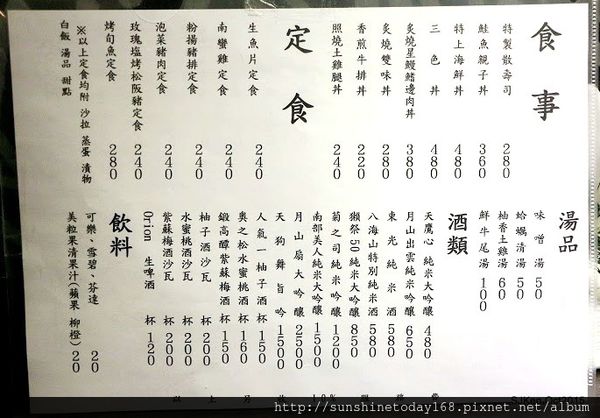 食事
特製散壽司 280
鮭魚親子丼 360
特上海鮮丼 480
三色丼 480
炙燒星鰻鰭邊肉丼 380
炙燒雙味丼 280
香煎牛排丼 220
照燒土雞腿丼 240
定食
生魚片定食 240
南蠻雞定食 240
粉揚豬排定食 240
泡菜豬肉定食 240
玫瑰塩烤松阪豬定食 240
烤旬魚定食 280
※以上定食均附 沙拉 蒸蛋 漬物
白飯 湯品 甜點
湯品
味噌湯 50
蛤蠣清湯 50
柚香土雞湯 60
鮮牛尾湯 100
酒類
天鷹心 純米大吟釀 480
月山出雲純米吟釀 650
東光純米酒 580
八海山特別純米酒 580
獺祭50純米大吟釀 850
菊之司純米吟釀 1200
南部美人純米大吟釀 1500
月山扇大吟釀 2500
天狗舞旨吟 1500
人氣一柚子酒 杯 150
奧之松水蜜桃酒 杯 160
鍛高譚紫蘇梅酒 杯 150
柚子酒沙瓦 杯 200
水蜜桃酒沙瓦 杯 200
紫蘇梅酒沙瓦 杯 200
Orion 生啤酒 杯 120
飲料
可樂、雪碧、芬達 20
美粒果清果汁(蘋果 柳橙) 20
http://sunshinetoday168.pixnet.net/album